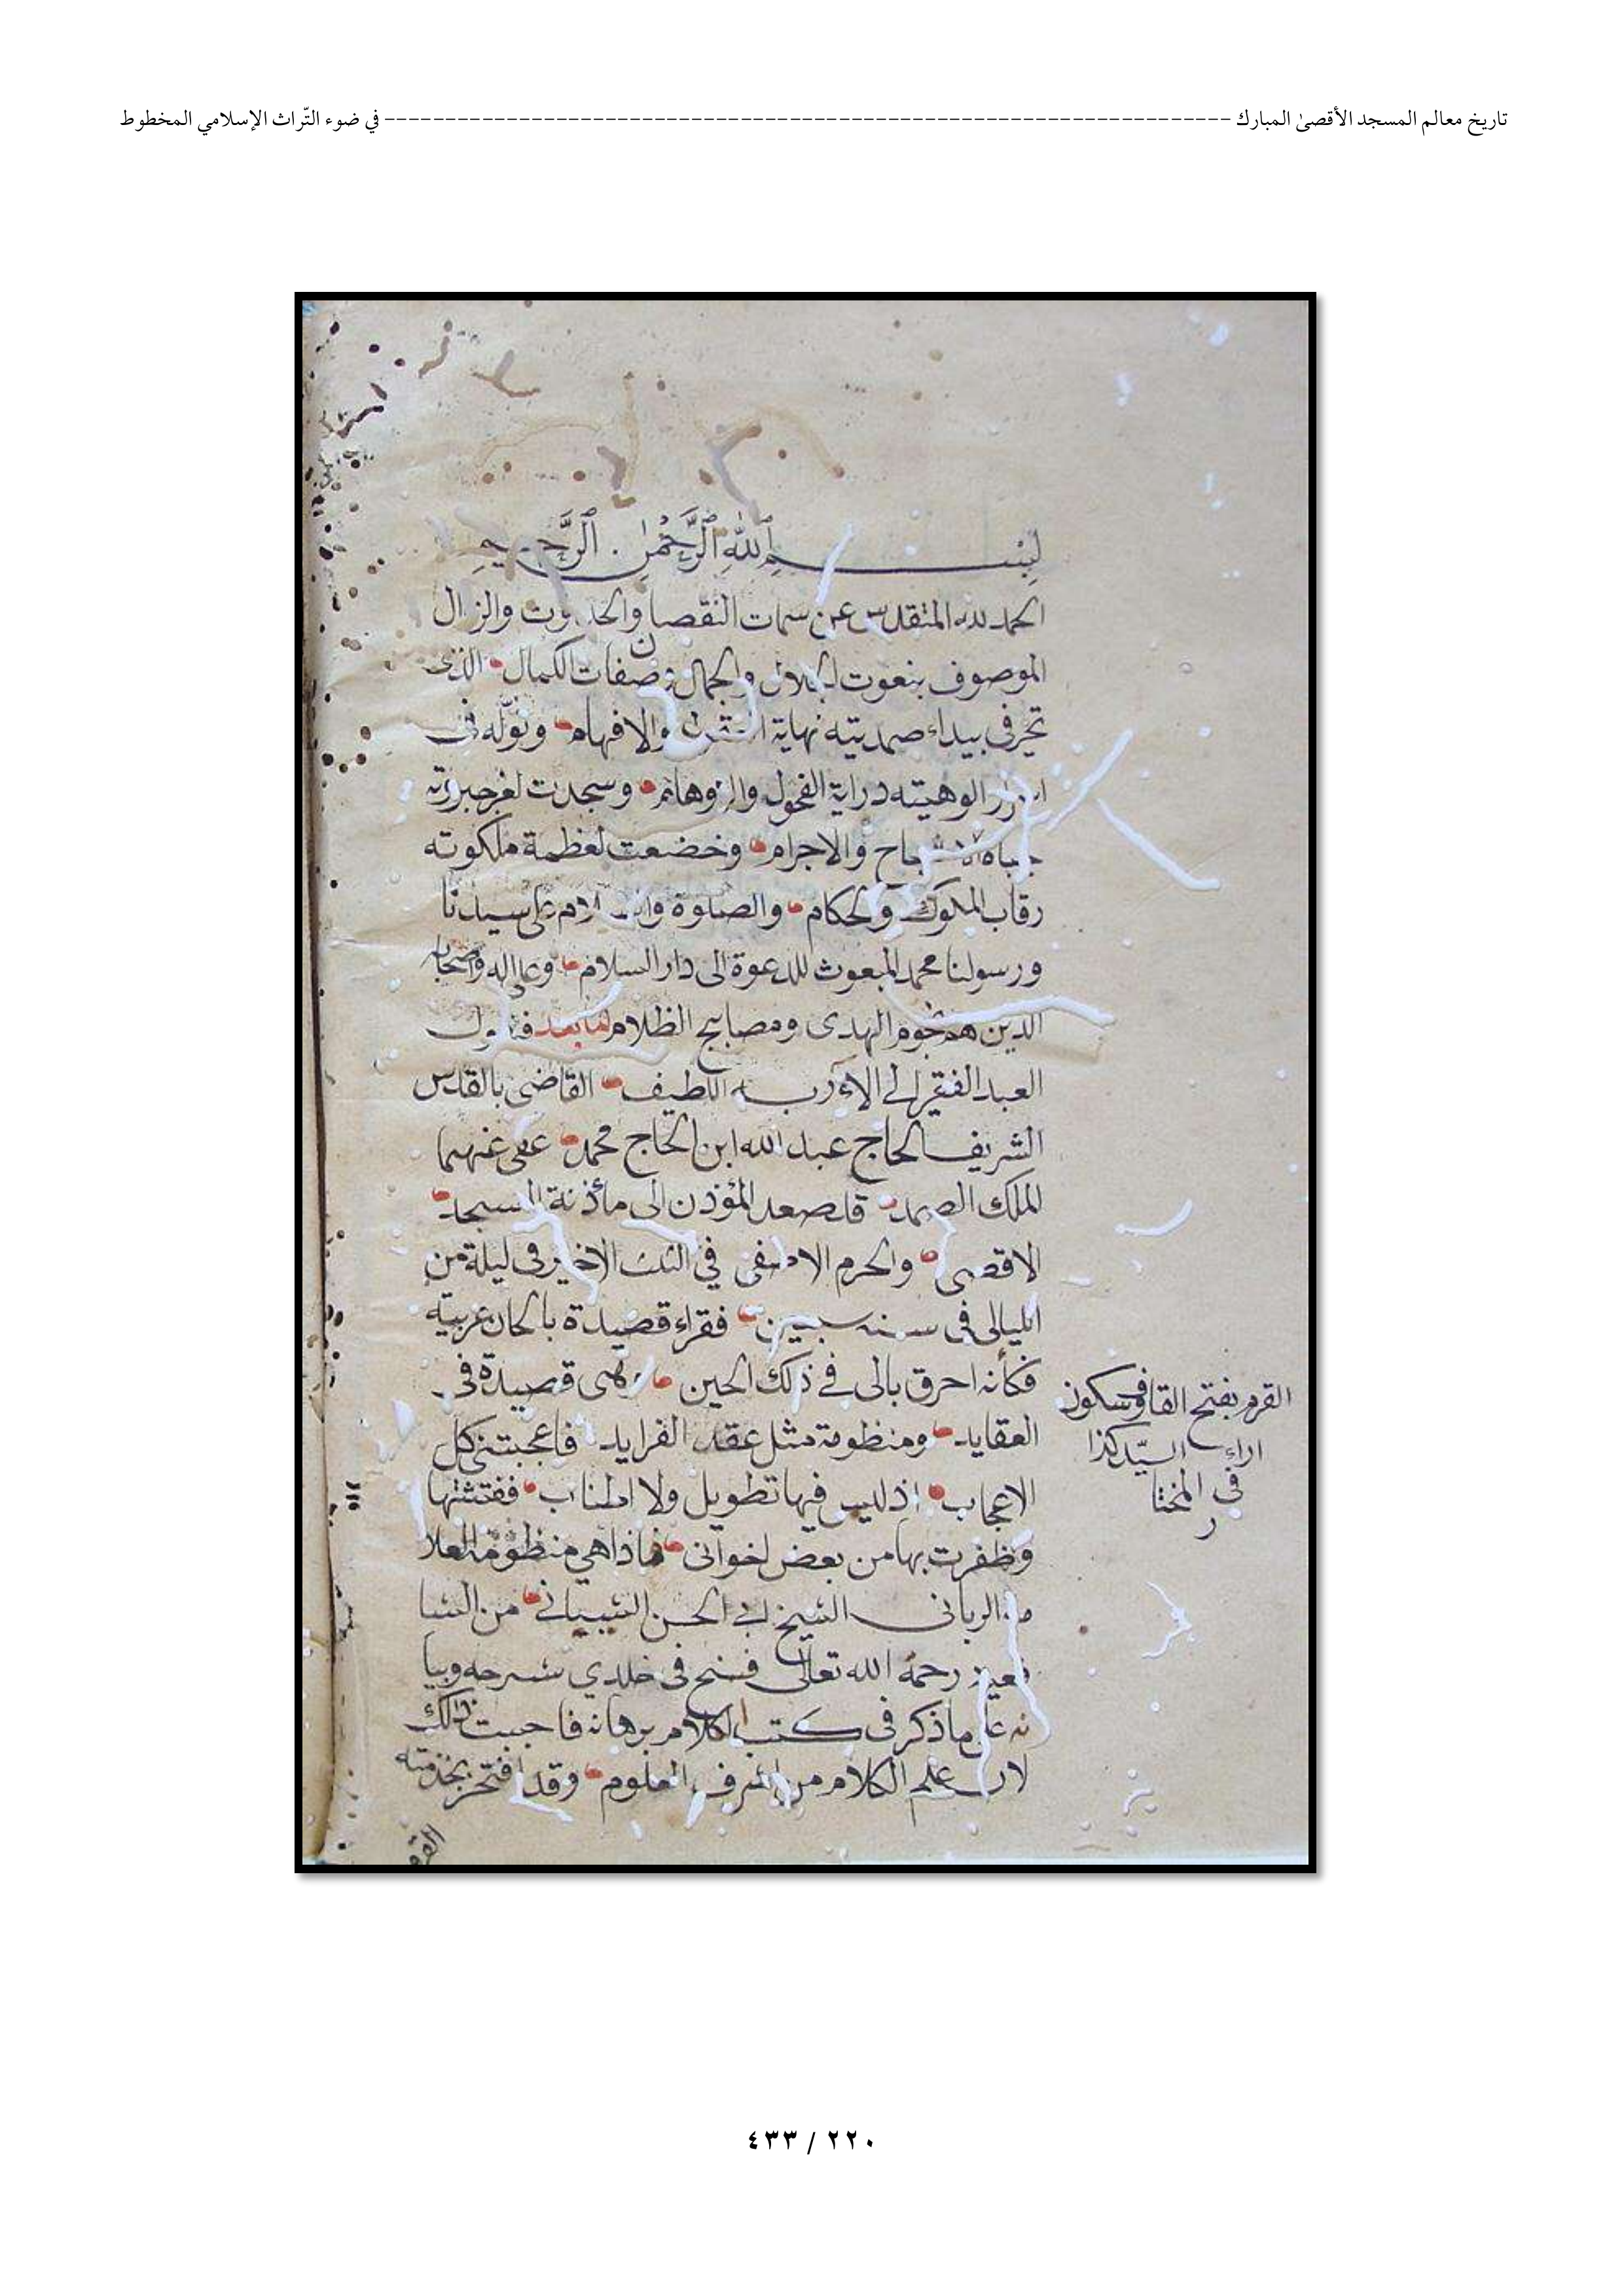 تاريخ معالم المسجد الأقصىٰ المبارك ---------------------------------------------------------------------- في ضوء التّراث الإسلامي المخطوط
بسم الله الرحمن الرحيم
الحمد لله المتقدس عن سمات النقصان والحدوث والزوال
الموصوف بنعوت الجلال والجمال وصفات الكمال الذى
تحير فى بيداء صمديته نهاية والافهام وتوله فى
الوهيته دراية الفحول والاوهام وسجدت لعز جبروته
جباه الاشباح والاجرام وخضعت لعظمة ملكوته
رقاب الملوك والحكام والصلوة والسلام على سيدنا
ورسولنا محمد المبعوث للدعوة الى دار السلام وعلى اله واصحابه
الذين هم نجوم الهدى ومصابيح الظلام اما بعد فيقول
العبد الفقير الى الاء ربه اللطيف القاضى بالقدس
الشريف الحاج عبد الله ابن الحاج محمد عفى عنهما
الملك الصمد قد صعد المؤذن الى مأذنة المسجد
الاقصى والحرم الاصفى في الثلث الاخير فى ليلة من
الليالى فى سنه سبعين فقراء قصيدة بالحان عربيته
فكأنه احرق بالى في ذلك الحين وهى قصيدة فى
العقايد ومنظومة مثل عقد الفرايد فاعجبتنى كل
الاعجاب اذ ليس فيها تطويل ولا اطناب ففتشتها
وظفرت بها من بعض اخوانى فاذا هي منظومة العلا
مة الربانى الشيخ ابى الحسن الشيبانى من الشا
فعية رحمه الله تعالى فسنح فى خلدي شرحه وبيا
نه على ما ذكر فى كتب الكلام برهانه فاجبت ذلك
لان علم الكلام من اشرف العلوم وقد افتخر بخدمته
القرم
القرم بفتح القاف وسكون
الراء السيّد كذا
فى المختار
٢٢٠ / ٤٣٣